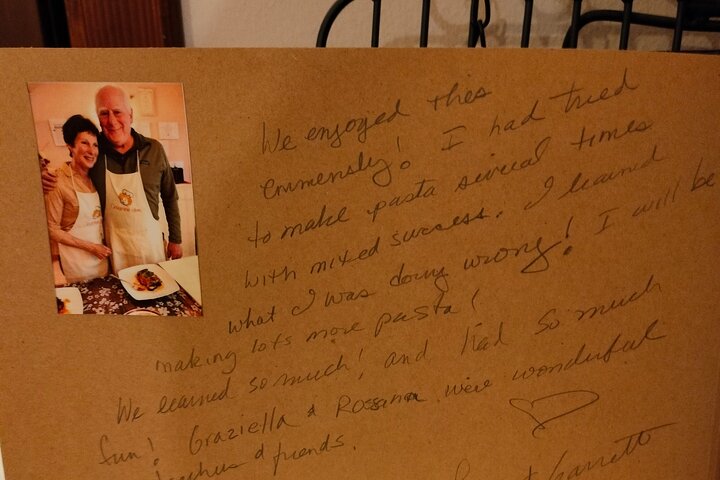 We enjoyed this
immensely! I had tried
to make pasta several times
with mixed success. I learned
what I was doing wrong! I will be
making lots more pasta!
We learned so much! and had so much
fun! Graziella & Rossana were wonderful
teachers & friends.
Garrett